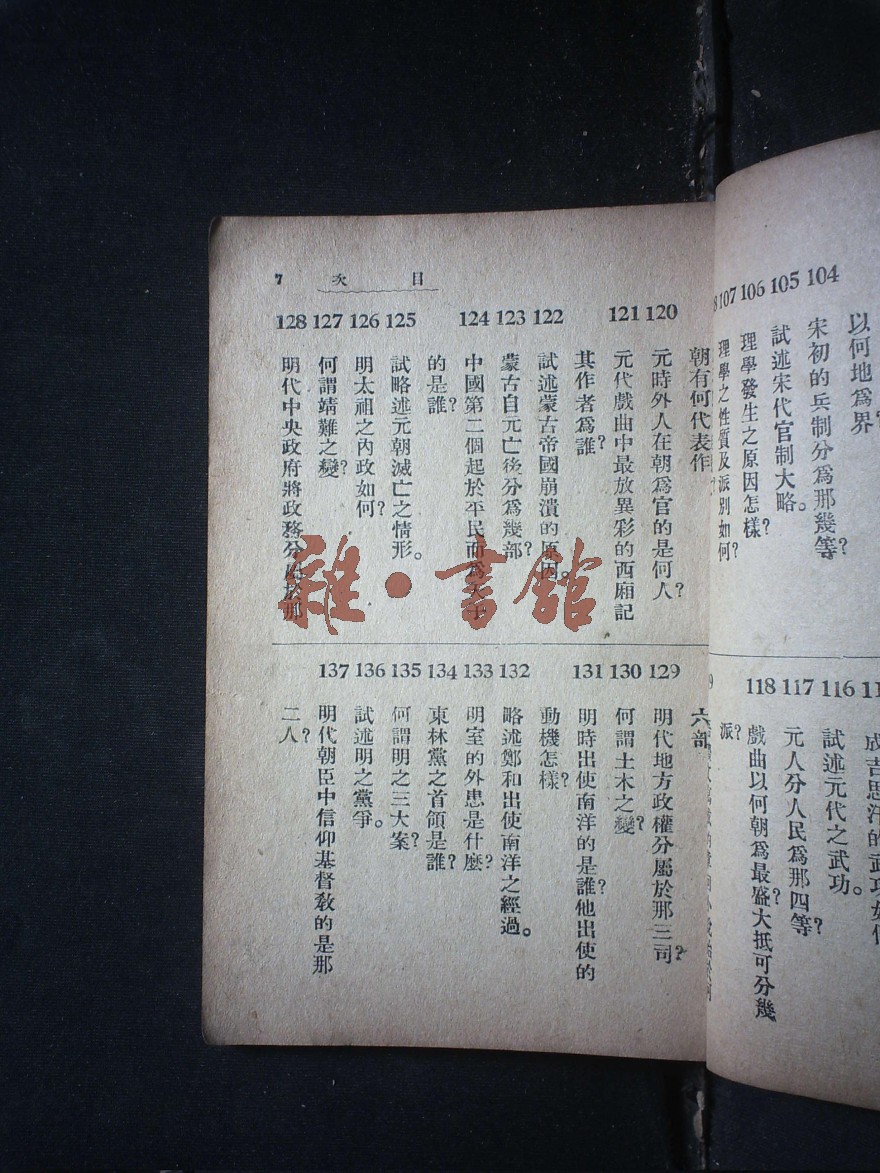 104 宋初的兵制分爲那幾等？
105 試述宋代官制大略。
106 理學發生之原因怎樣？
107 理學之性質及派別如何？
以何地爲界
116 試述元代之武功。
117 元人分人民爲那四等？
118 戲曲以何朝爲最盛？大抵可分幾
派？
目次 7
朝有何代表作
120 元時外人在朝爲官的是何人？
121 元代戲曲中最放異彩的西廂記
其作者爲誰？
122 試述蒙古帝國崩潰的原因。
123 蒙古自元亡後分爲幾部？
124 中國第二個起於平民而爲天子
的是誰？
125 試略述元朝滅亡之情形。
126 明太祖之內政如何？
127 何謂靖難之變？
128 明代中央政府將政務分屬於那
六部
129 明代地方政權分屬於那三司？
130 何謂土木之變？
131 明時出使南洋的是誰？他出使的
動機怎樣？
132 略述鄭和出使南洋之經過。
133 明室的外患是什麼？
134 東林黨之首領是誰？
135 何謂明之三大案？
136 試述明之黨爭。
137 明代朝臣中信仰基督教的是那
二人？
雜·書館